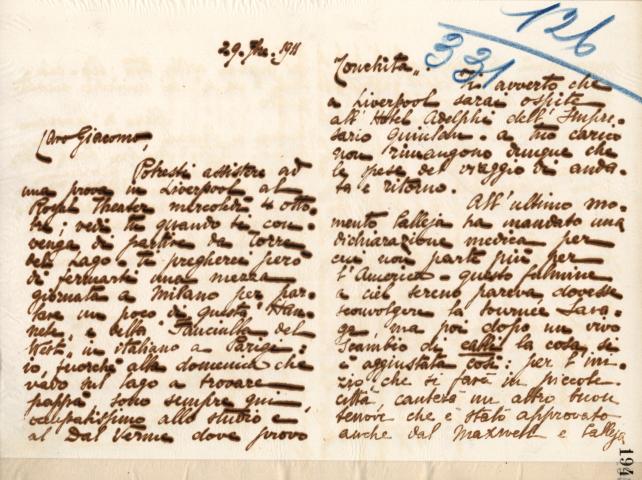 29. 7bre. 1911
Caro Giacomo,
Potresti assistere ad
una prova in Liverpool al
Royal Theater mercoledì 4 otto-
bre; vedi tu quando ti con-
venga di partire da Torre
del Lago - ti pregherei però
di fermarti una mezza
giornata a Milano per par-
lare un poco di questa
e della "Fanciulla del
West" in italiano a Parigi -
io, fuorchè alla domenica che
vado sul lago a trovare
pappà sono sempre qui,
occupatissimo allo studio e
al Dal Verme dove provo
126
331
"Conchita".
Ti avverto che
a Liverpool sarai ospite
all'Hotel Adelphi dell'Impre-
sario Quinlan - a tuo carico
non rimangono dunque che
le spese del viaggio di anda-
ta e ritorno.
All'ultimo mo-
mento Calleja ha mandato una
dichiarazione medica per
cui non parte più per
l'America - questo fulmine
a ciel sereno pareva dovesse
sconvolgere la tournée Sava-
ge, ma poi dopo un vivo
scambio di la cosa si
è aggiustata così: per l'ini-
zio che si farà in piccole
città canterà un altro buon
tenore che è stato approvato
anche dal Maxwell e Calleja
194